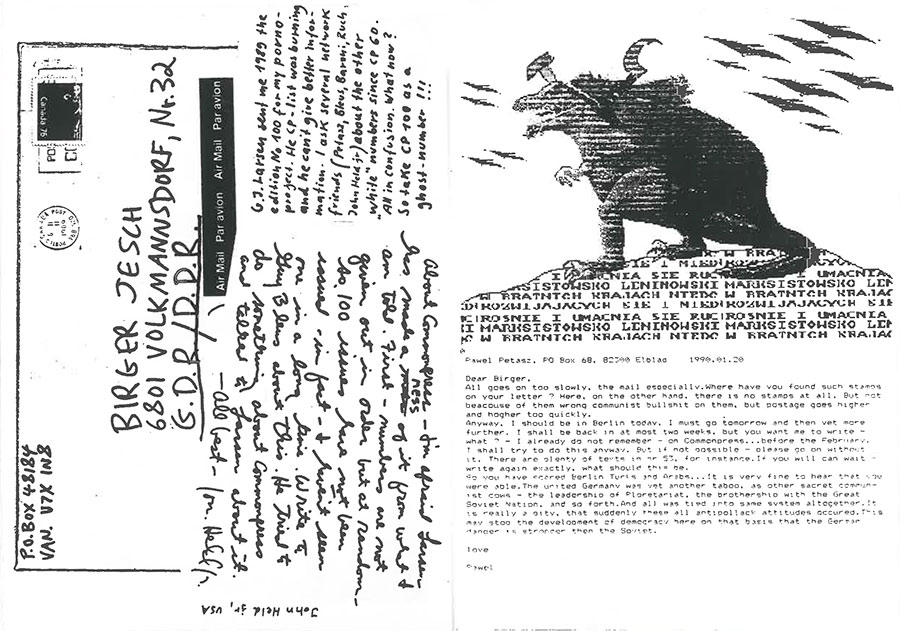 P.O.BOX 48184
VAN. V7X 1N8
Canada 76
BIRGER JESCH
6801 VOLKMANNSDORF, Nr.32
G.D.R. / D.D.R.
Air Mail Par avion Air Mail Par avion Air Mail Par avion
G.J. Larsen sent me 1989 the
edition No 100 for my porno-
project. He CP-list was burning
and he can't give better infor-
mation. I ask several network
friends (Petasz, Bleus, Baroni, Ruch,
John Held jr) about the other
"white" numbers since CP 60.
All in confusion. What now?
So take CP 100 as a
ghost-number !!!
About Commonpress - I'm afraid Larsen
has made a mess of it from what I
am told. First - numbers were not
given out in order but at random -
So, 100 issues have not been
issued - in fact - I haven't seen
one in a long time. Write to
Guy Bleus about this. He tried to
do something about Commonpress
and talked to Larsen about it.
- all best - Jn. Held Jr.
John Held jr, USA
W BRATN
I NIEDIROZWIJAJACYCH
CNIA SIE RUC I UMACNIA
SISTOWSKO LENINOWSKI MARKSISTOWSKO LEN
W BRATNICH KRAJACH NIEDO W BRATNICH KRAJAC
DIROZWIJAJACYCH SIE I NIEDIROZWIJAJACYCH
CIROSNIE I UMACNIA SIE RUCIROSNIE I UMACNIA
I MARKSISTOWSKO LENINOWSKI MARKSISTOWSKO LEN
W BRATNICH KRAJACH NIEDO W BRATNICH KRAJAC
Pawel Petasz, PO Box 68, 82300 Elblag 1990.01.20
Dear Birger,
All goes on too slowly, the mail especially.Where have you found such stamps
on your letter ? Here, on the other hand, there is no stamps at all. But not
beacouse of them wrong communist bullshit on them, but postage goes higher
and hogher too quickly.
Anyway, I should be in Berlin today. I must go tomorrow and then yet more
further. I shall be back in at most two weeks, but you want me to write -
what ? - I already do not remember - on Commonpress...before the February.
I shall try to do this anyway. But if not possible - please go on without
it. There are plenty of texts in nr 53, for instance.If you will can wait -
write again exactly, what should this be.
So you have scared Berlin Turks and Arabs...It is very fine to hear that you
were able.The united Germany was yet another taboo, as other sacred commun-
ist cows - the leadership of Ploretariat, the brothership with the Great
Soviet Nation, and so forth.And all was tied into same system altogether.It
is really a pity, that suddenly these all antipollack attitudes occured.This
may stop the development of democracy here on that basis that the German
danger is stronger then the Soviet.
love
Pawel